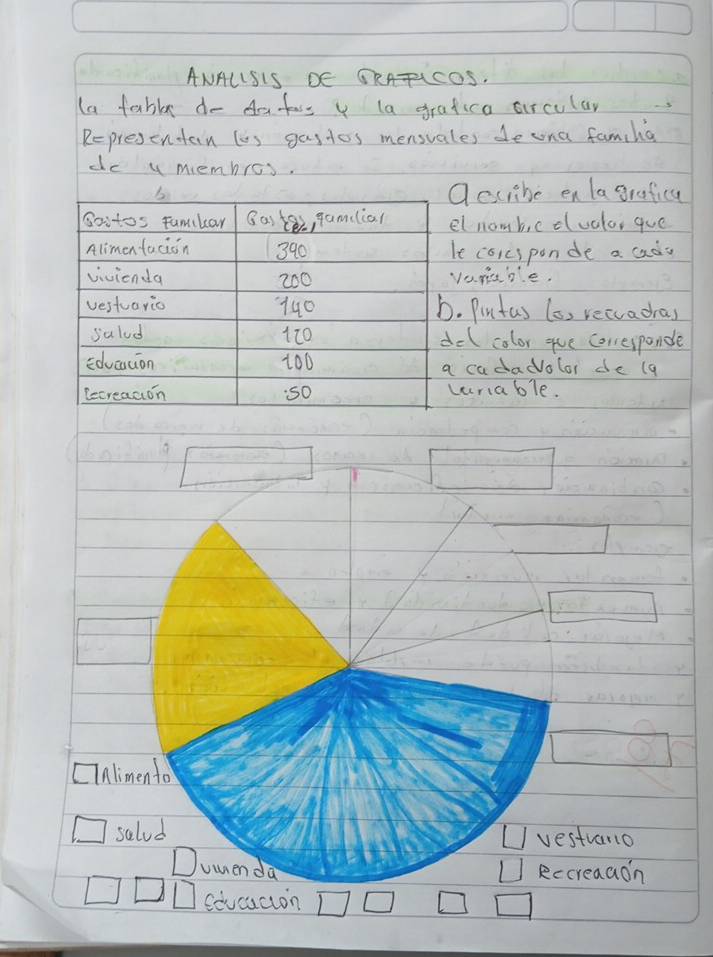 ANALISIS DE GRAFICOS.
la tabla de datos y la grafica circular
Representan los gastos mensuales de una familia
de 4 miembros.
Gastos Familiar
Gastos familiar
Alimentación
390
vivienda
200
vestuario
140
salud
120
Educación
100
Recreación
50
a escribe en la grafica
el nombre el valor que
le corresponde a cada
variable.
b. Pintas los recuadras
del color que corresponde
a cada valor de la
variable.
Alimento
salud
vivienda
Educación
vestuario
Recreación